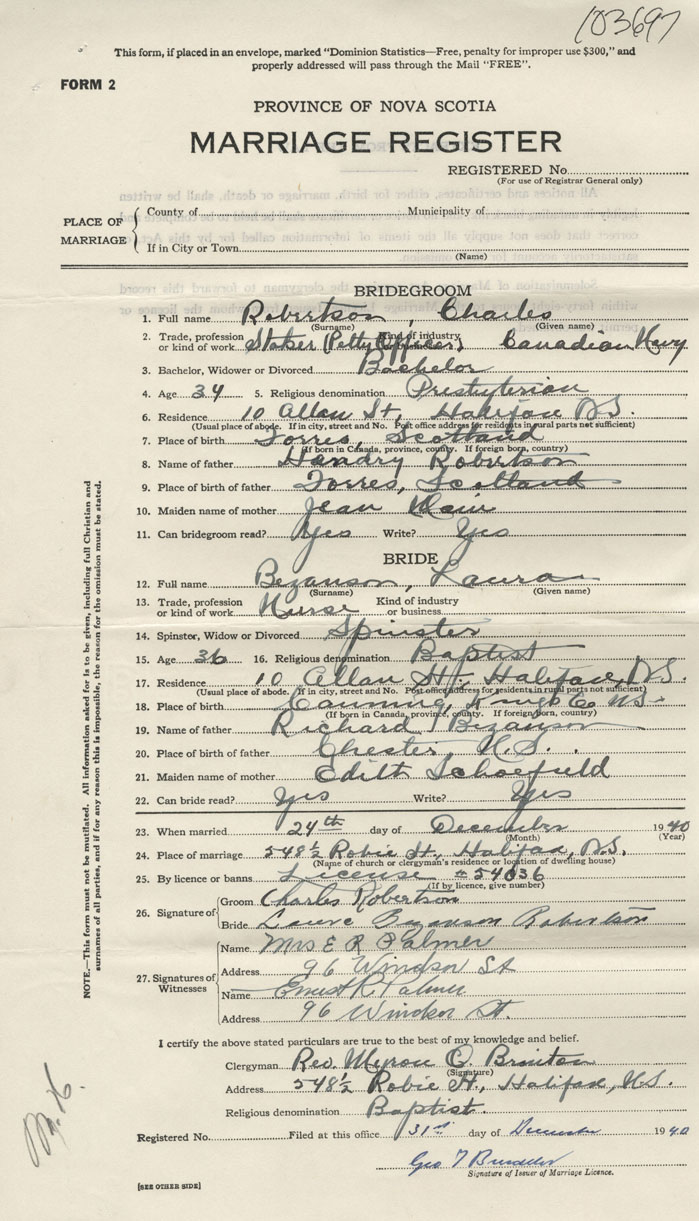 103697
This form, if placed in an envelope, marked "Dominion Statistics—Free, penalty for improper use $300," and
properly addressed will pass through the Mail "FREE".
FORM 2
PROVINCE OF NOVA SCOTIA
MARRIAGE REGISTER
REGISTERED No.
(For use of Registrar General only)
PLACE OF MARRIAGE
County of Municipality of
If in City or Town
(Name)
BRIDEGROOM
1. Full name Robertson, Charles
(Surname) (Given name)
2. Trade, profession or kind of work Stoker (Petty Officer) Kind of industry Canadian Navy
3. Bachelor, Widower or Divorced Bachelor
4. Age 34 5. Religious denomination Presbyterian
6. Residence 10 Allan St, Halifax N.S.
(Usual place of abode. If in city, street and No. Post office address for residents in rural parts not sufficient)
7. Place of birth Forres, Scotland
(If born in Canada, province, county. If foreign born, country)
8. Name of father Hendry Robertson
9. Place of birth of father Forres, Scotland
10. Maiden name of mother Jean Mair
11. Can bridegroom read? Yes Write? Yes
BRIDE
12. Full name Bezanson, Laura
(Surname) (Given name)
13. Trade, profession or kind of work Nurse Kind of industry or business
14. Spinster, Widow or Divorced Spinster
15. Age 36 16. Religious denomination Baptist
17. Residence 10 Allan St. Halifax, N.S.
(Usual place of abode. If in city, street and No. Post office address for residents in rural parts not sufficient)
18. Place of birth Canning, Kings Co N.S.
(If born in Canada, province, county. If foreign born, country)
19. Name of father Richard Bezanson
20. Place of birth of father Chester, N.S.
21. Maiden name of mother Edith Schoefield
22. Can bride read? Yes Write? Yes
23. When married 24th day of December 1940
(Month) (Year)
24. Place of marriage 548½ Robie St., Halifax, N.S.
(Name of church or clergyman's residence or location of dwelling house)
25. By licence or banns License #54036
(If by licence, give number)
26. Signature of
Groom Charles Robertson
Bride Laura Bezanson Robertson
27. Signatures of Witnesses
Name Mrs E R Palmer
Address 96 Windsor St
Name Ernest R Palmer
Address 96 Windsor St.
I certify the above stated particulars are true to the best of my knowledge and belief.
Clergyman Rev. Myron O. Brinton
(Signature)
Address 548½ Robie St., Halifax, N.S.
Religious denomination Baptist.
Registered No. Filed at this office 31st day of December 1940
Geo T
Signature of Issuer of Marriage Licence.
[SEE OTHER SIDE]
NOTE.—This form must not be mutilated. All information asked for is to be given, including full Christian and
surnames of all parties, and if for any reason this is impossible, the reason for the omission must be stated.